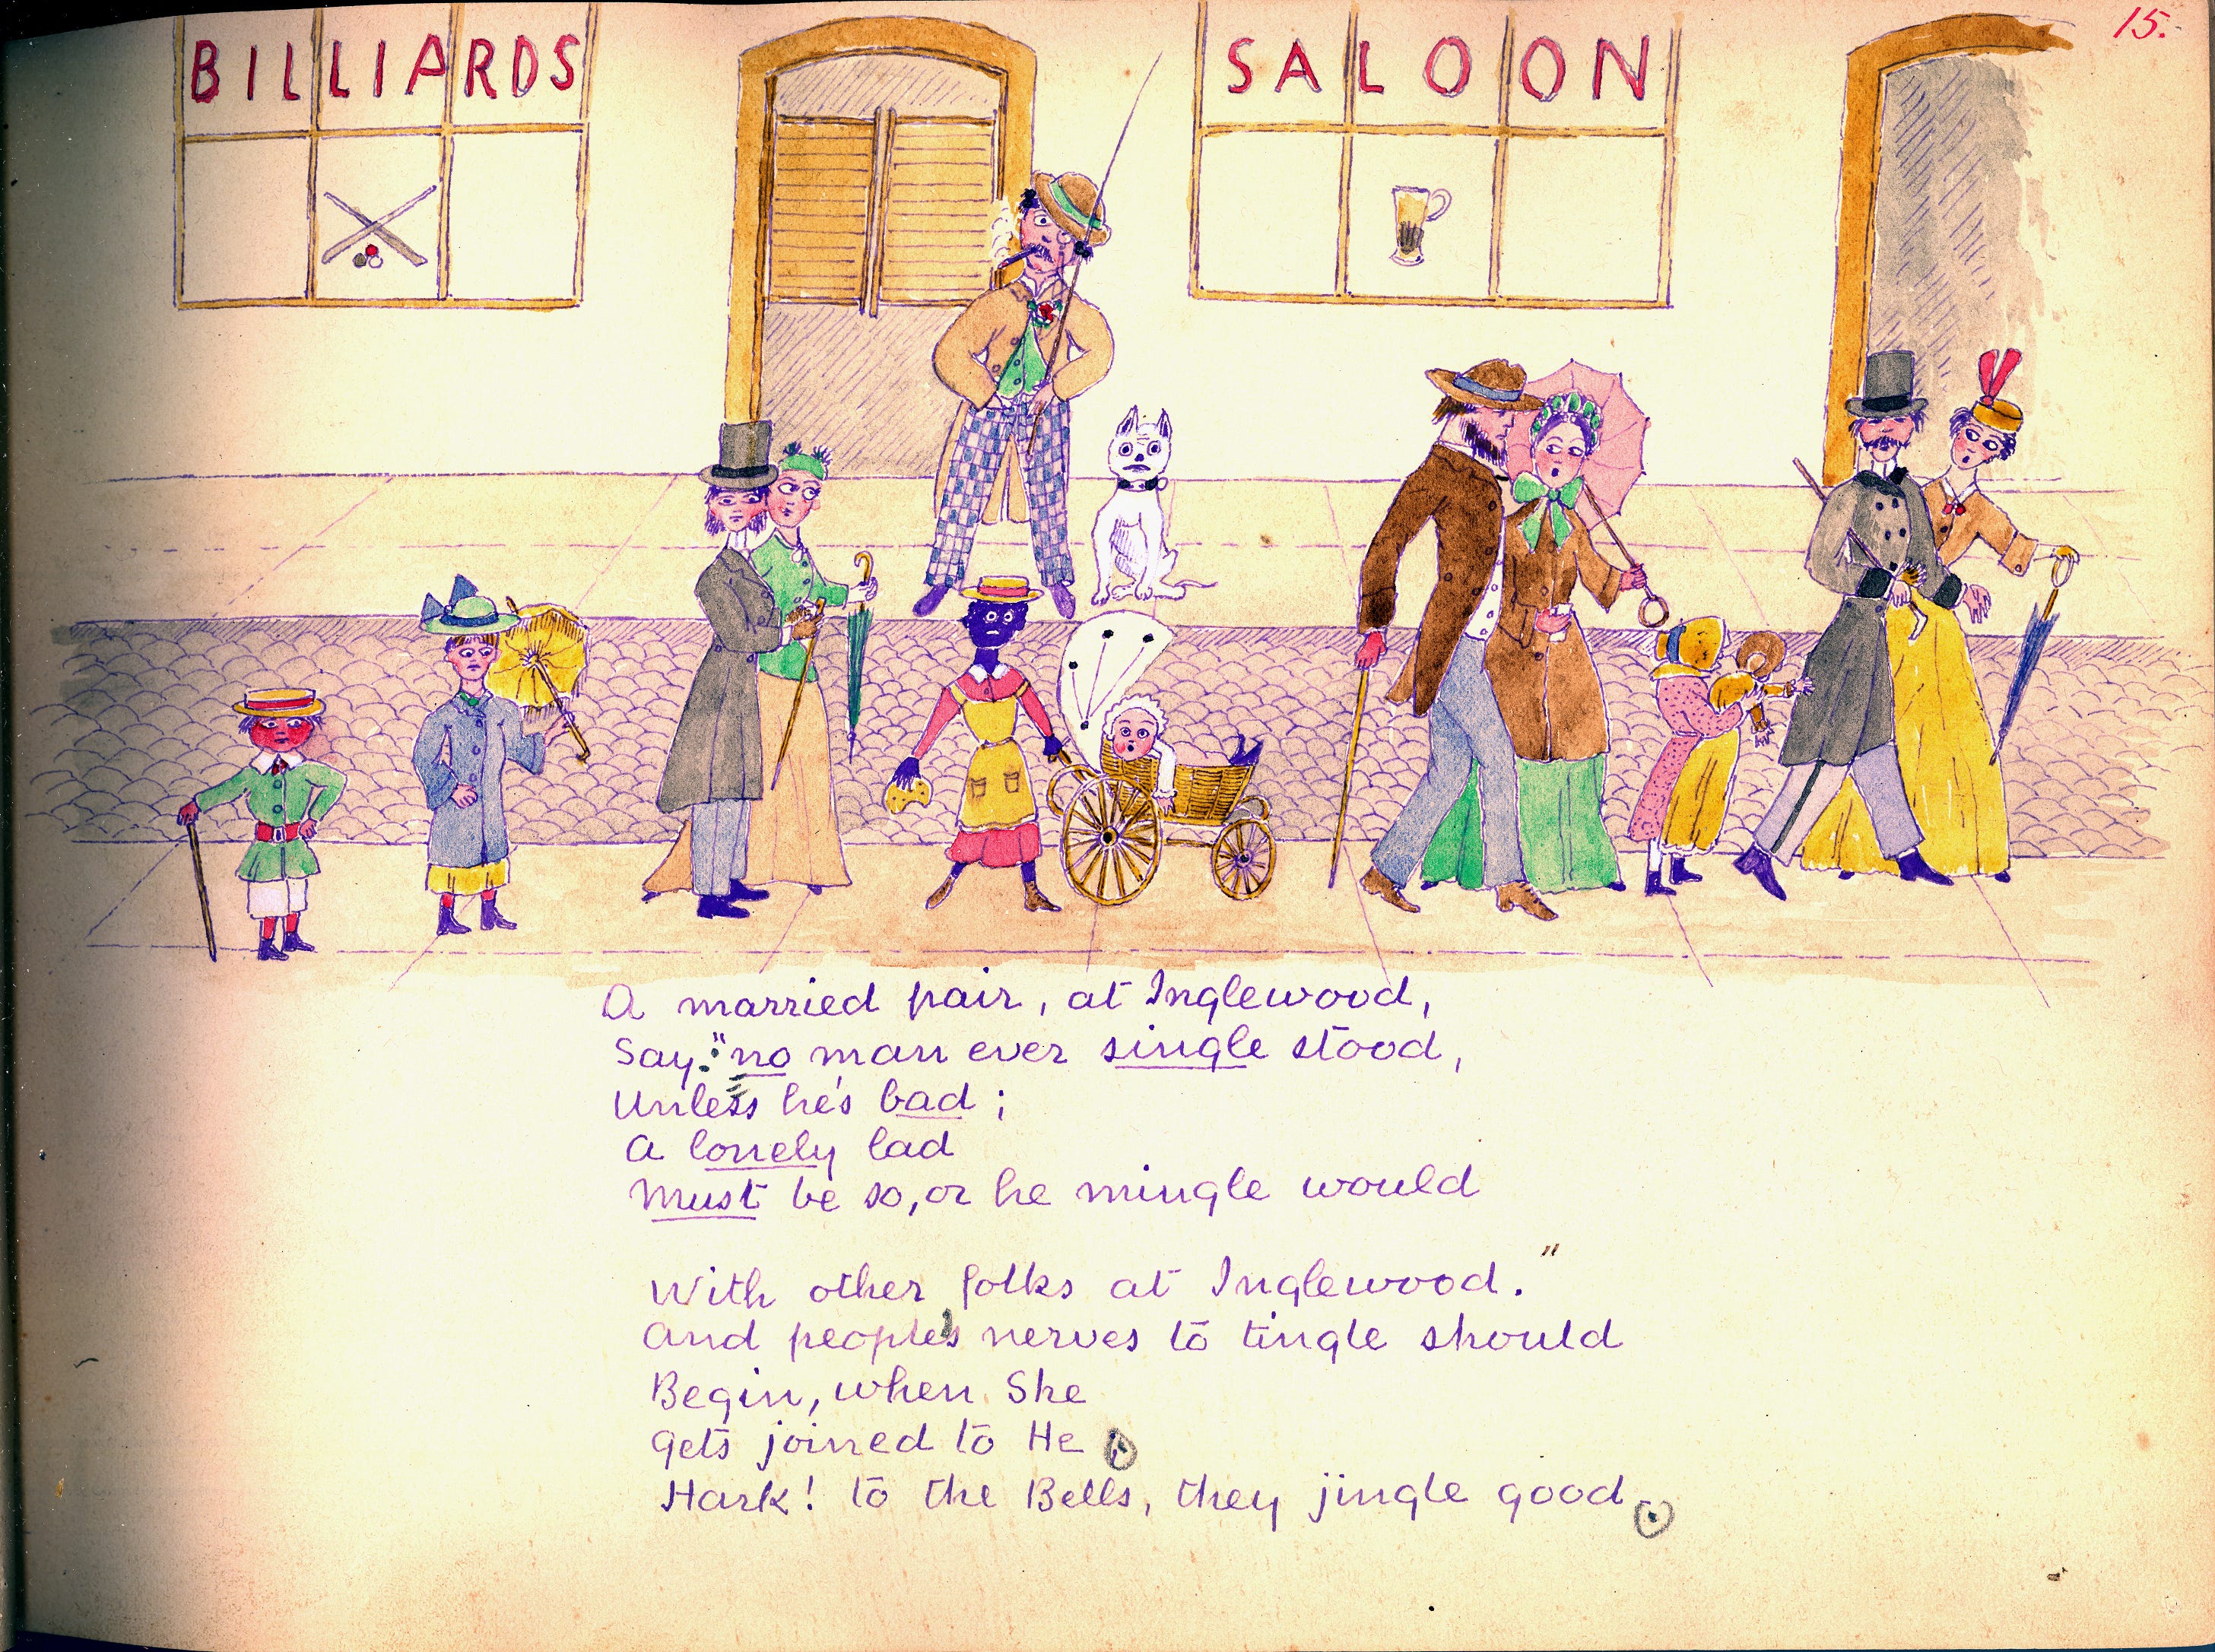 15.
BILLIARDS
SALOON
A married pair, at Inglewood,
Say: "no man ever single stood,
Unless he's bad;
A lonely lad
Must be so, or he mingle would
With other folks at Inglewood."
And people's nerves to tingle should
Begin, when She
Gets joined to He;
Hark! to the Bells, they jingle good.